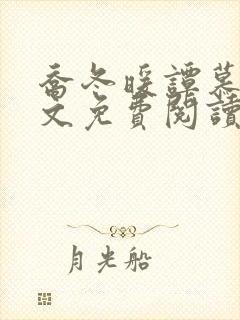 喬冬暖譚慕
文免費閱讀
月光船